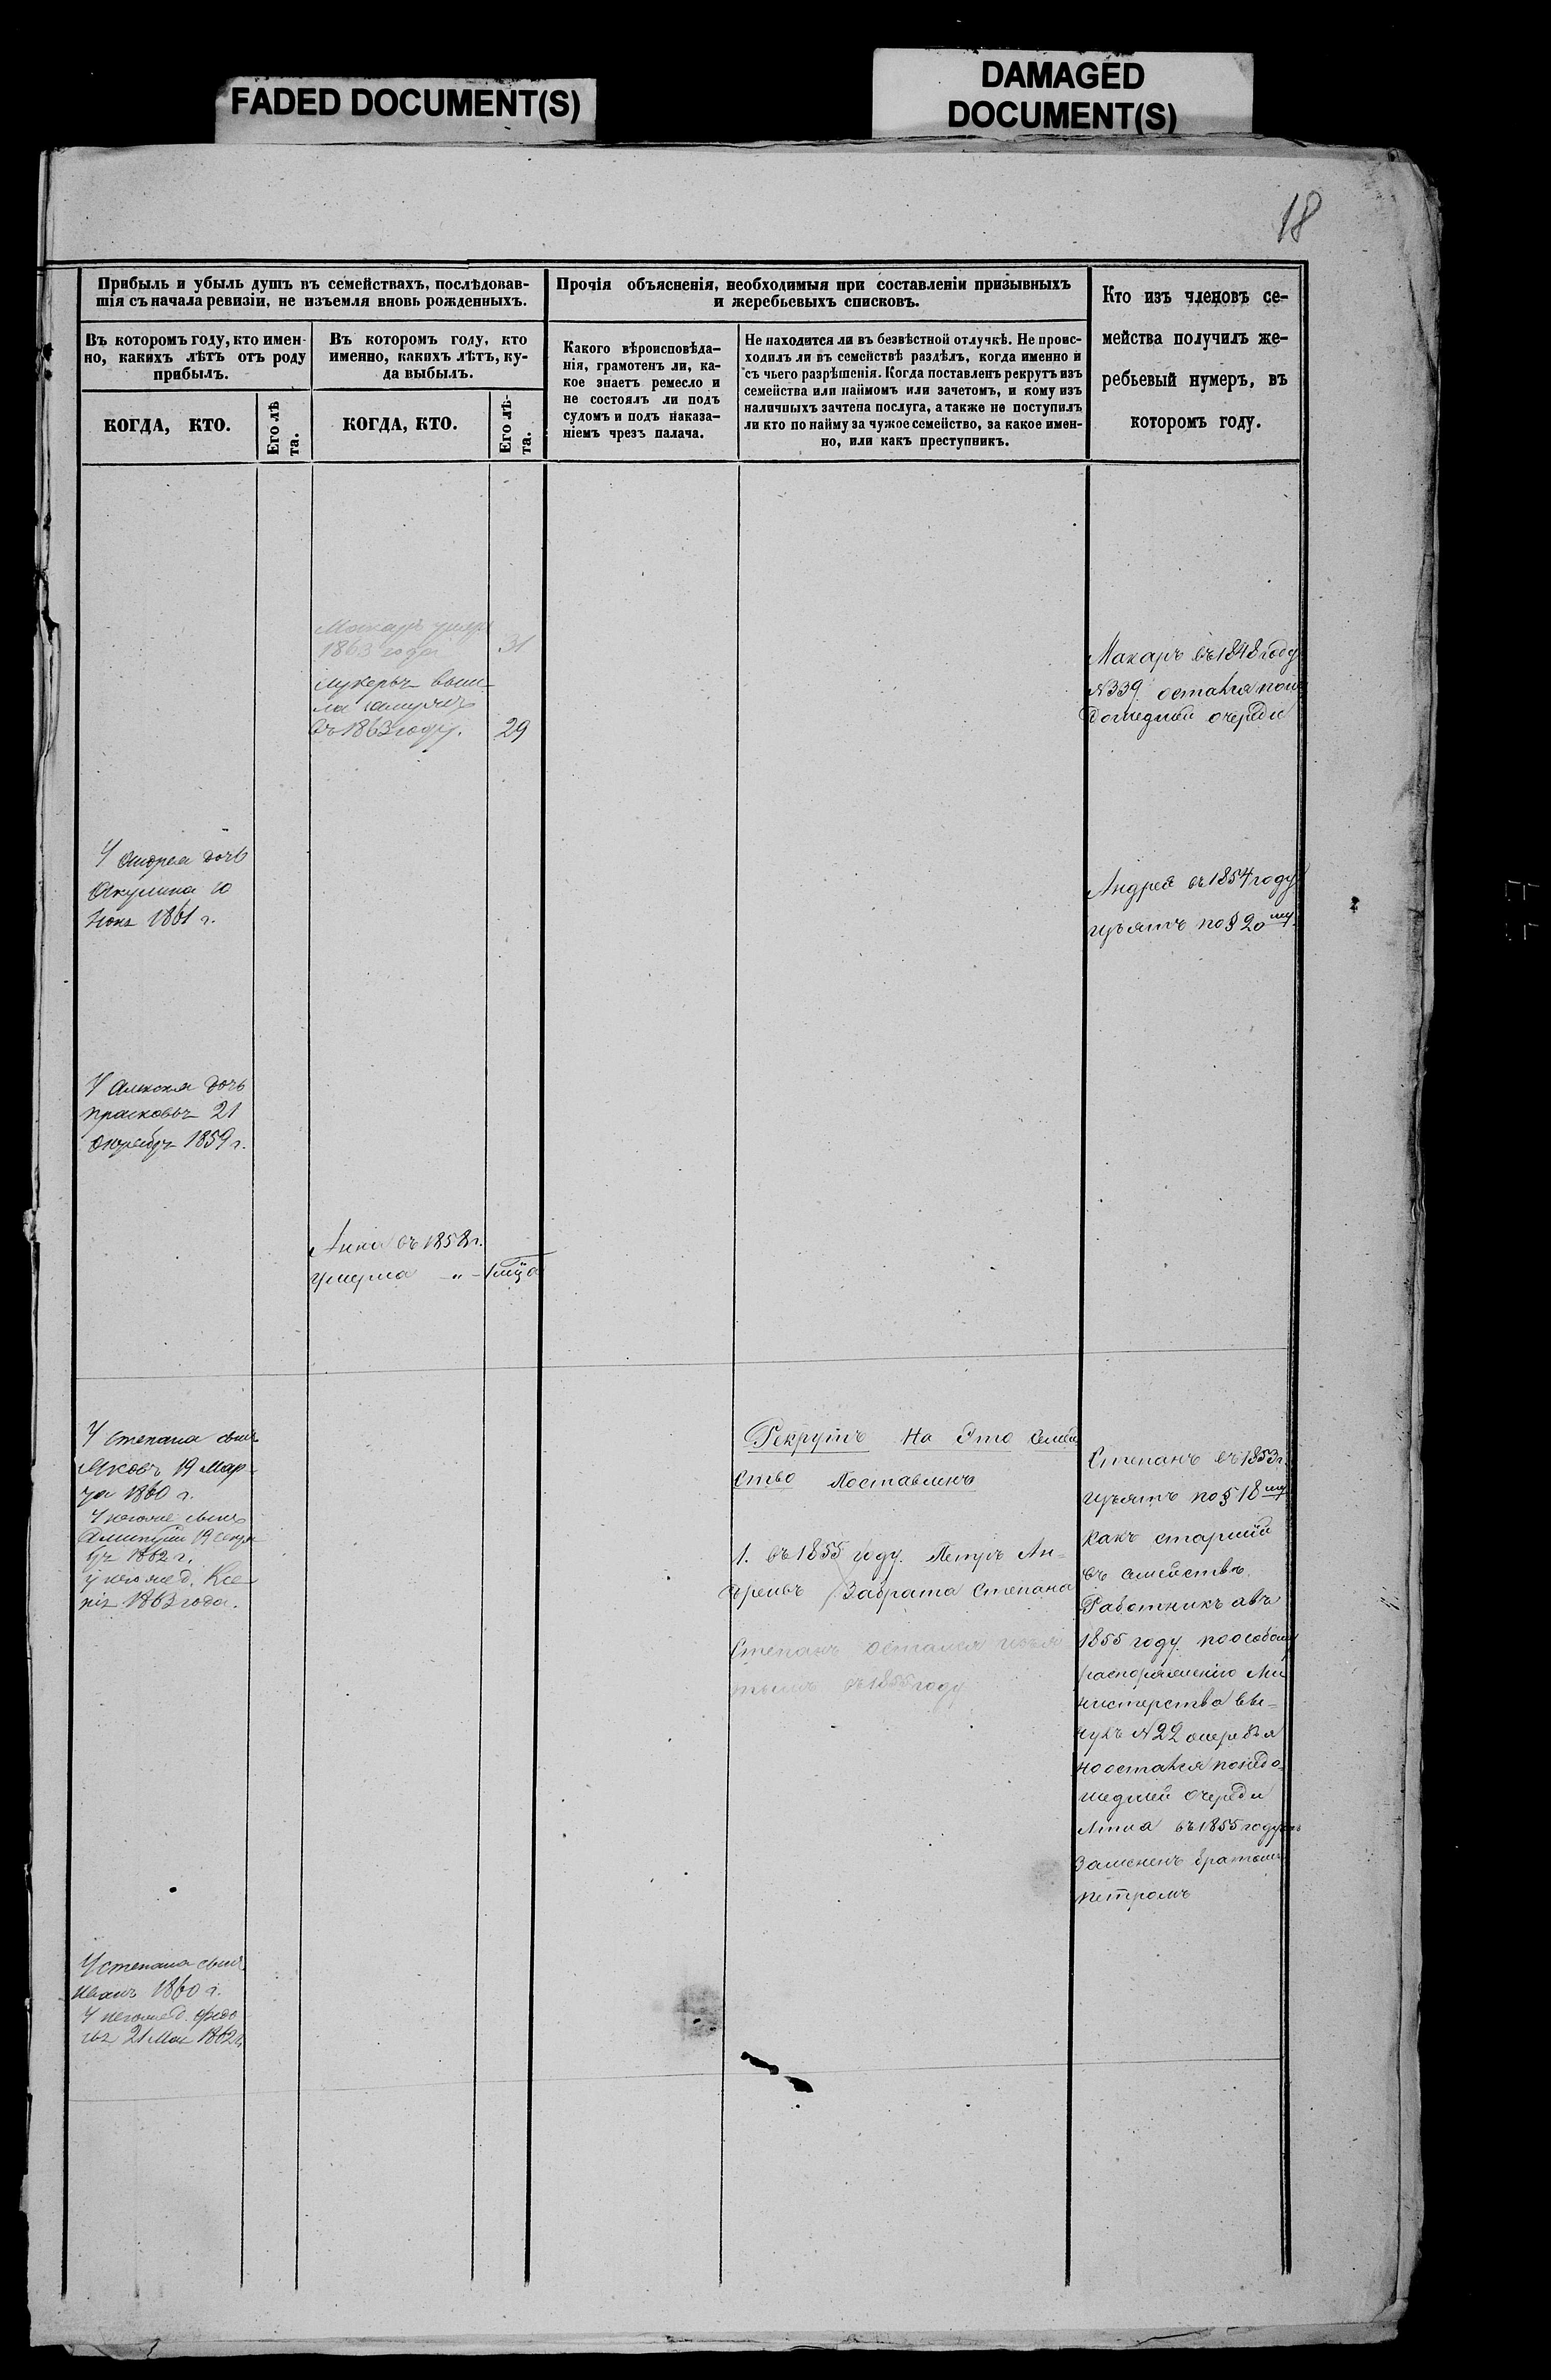 FADED DOCUMENT(S)
DAMAGED
DOCUMENT(S)
18
Прибыль и убыль душъ въ семействахъ, послѣдовав-
шія съ начала ревизіи, не изъемля вновь рожденныхъ.
Въ которомъ году, кто имен-
но, какихъ лѣтъ отъ роду
прибылъ.
КОГДА, КТО.
Его лѣ
та.
Въ которомъ году, кто
именно, какихъ лѣтъ, ку-
да выбылъ.
КОГДА, КТО.
Его лѣ-
та.
Прочія объясненія, необходимыя при составленіи призывныхъ
и жеребьевыхъ списковъ.
Какого вѣроисповѣда-
нія, грамотенъ ли, ка-
кое знаетъ ремесло и
не состоялъ ли подъ
судомъ и подъ наказа-
ніемъ чрезъ палача.
Не находится ли въ безвѣстной отлучкѣ. Не проис-
ходилъ ли въ семействѣ раздѣлъ, когда именно и
съ чьего разрѣшенія. Когда поставленъ рекрутъ изъ
семейства или наймомъ или зачетомъ, и кому изъ
наличныхъ зачтена послуга, а также не поступилъ
ли кто по найму за чужое семейство, за какое имен-
но, или какъ преступникъ.
Кто изъ членовъ се-
мейства получилъ же-
ребьевый нумеръ, въ
которомъ году.
Макаръ
1863 года 31
въ 1863 году. 29
Макаръ въ 1848 году
№339 остался
дошедшей очереди
У Андрея дочь
Акулина 10
1861 г.
Андрей въ 1854 году
изъятъ по § 20му.
У Алексея дочь
Прасковья 21
Октября 1859 г.
Анна въ 1858 г.
умерла -„-
У Степана сынъ
Яковъ 19 Мар-
та 1860 г.
У негоже сынъ
19
1862 г.
у негоже д. Ксе-
нія 1863 года.
Рекрутъ На Это Семей
ство Поставленъ
1. въ 1855 году. Петръ Ан-
дреевъ За брата Степана
Степанъ остался
въ 1855 году
Степанъ въ 1853 г.
изъятъ по § 18му
какъ старшій
въ семействѣ
Работникъ авъ
1855 году по особому
распоряженію Ми
нистерства вы-
нулъ №22
но остался понедо-
шедшей очереди
въ 1855 году
Замененъ братомъ
Петромъ
У Степана сынъ
Иванъ 1860 г.
У негоже д. Федо
21 Мая 1862 г.